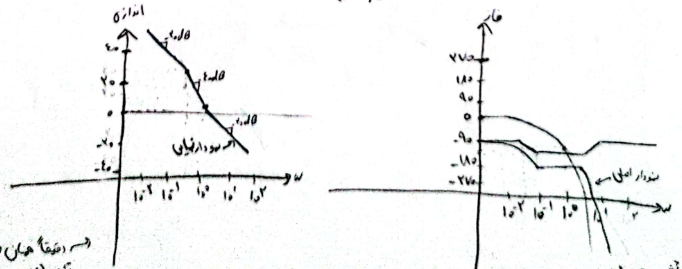 اندازه
۴۰
۲۰
۰
-۲۰
-۴۰
-۲۰dB
-۴۰dB
-۲۰dB
نمودار نهایی
10⁻² 10⁻¹ 10⁰ 10¹ 10² ω
فاز
۲۷۰
۱۸۰
۹۰
۰
-۹۰
-۱۸۰
-۲۷۰
نمودار اصلی
10⁻² 10⁻¹ 10⁰ 10¹ ۲ ω
دقیقاً همان